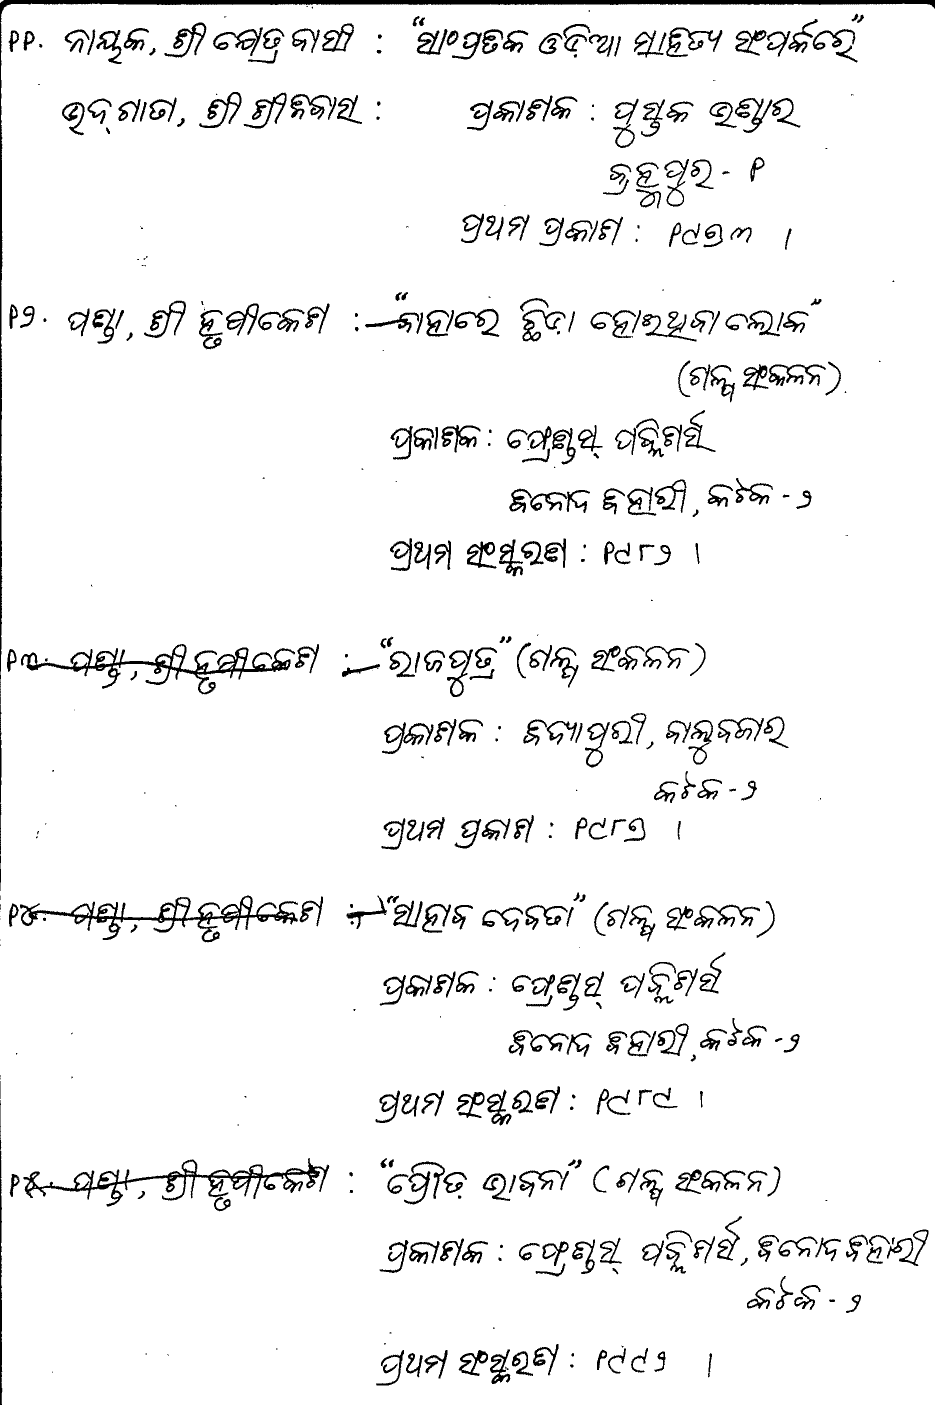 ୧୧. ନାୟକ, ଶ୍ରୀ କ୍ଷେତ୍ରବାସୀ : "ସାଂପ୍ରତିକ ଓଡ଼ିଆ ସାହିତ୍ୟ ସଂପର୍କରେ"
ଉଦ୍‌ଗାତା, ଶ୍ରୀ ଶ୍ରୀନିବାସ : ପ୍ରକାଶକ : ପୁସ୍ତକ ଭଣ୍ଡାର
ବ୍ରହ୍ମପୁର - ୧
ପ୍ରଥମ ପ୍ରକାଶ : ୧୯୭୩ ।
୧୨. ପଣ୍ଡା, ଶ୍ରୀ ହୃଷୀକେଶ : "ବାହାରେ ଛିଡ଼ା ହୋଇଥିବା ଲୋକ"
(ଗଳ୍ପ ସଂକଳନ)
ପ୍ରକାଶକ : ଫ୍ରେଣ୍ଡସ୍ ପବ୍ଲିଶର୍ସ
ବିନୋଦ ବିହାରୀ, କଟକ - ୨
ପ୍ରଥମ ସଂସ୍କରଣ : ୧୯୮୨ ।
୧୩. ପଣ୍ଡା, ଶ୍ରୀ ହୃଷୀକେଶ : "ରାଜପୁତ୍ର" (ଗଳ୍ପ ସଂକଳନ)
ପ୍ରକାଶକ : ବିଦ୍ୟାପୁରୀ, ବାଲୁବଜାର
କଟକ - ୨
ପ୍ରଥମ ପ୍ରକାଶ : ୧୯୮୭ ।
୧୪. ପଣ୍ଡା, ଶ୍ରୀ ହୃଷୀକେଶ : "ସାହାବ ଦେବତା" (ଗଳ୍ପ ସଂକଳନ)
ପ୍ରକାଶକ : ଫ୍ରେଣ୍ଡସ୍ ପବ୍ଲିଶର୍ସ
ବିନୋଦ ବିହାରୀ, କଟକ - ୨
ପ୍ରଥମ ସଂସ୍କରଣ : ୧୯୮୯ ।
୧୫. ପଣ୍ଡା, ଶ୍ରୀ ହୃଷୀକେଶ : "ପ୍ରୌଢ଼ ଭାବନା" (ଗଳ୍ପ ସଂକଳନ)
ପ୍ରକାଶକ : ଫ୍ରେଣ୍ଡସ୍ ପବ୍ଲିଶର୍ସ, ବିନୋଦବିହାରୀ
କଟକ - ୨
ପ୍ରଥମ ସଂସ୍କରଣ : ୧୯୯୨ ।